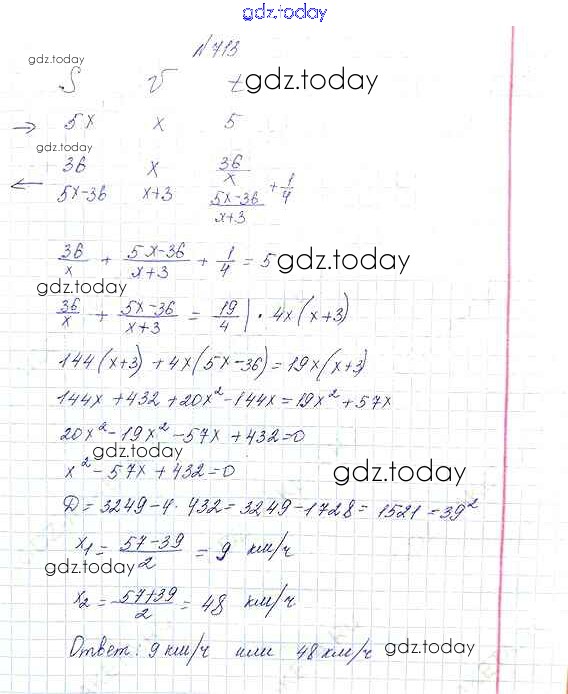 gdz.today
№713
gdz.today
S v t gdz.today
→ 5x x 5
gdz.today
36 x 36/x
← 5x-36 x+3 (5x-36)/(x+3) + 1/4
36/x + (5x-36)/(x+3) + 1/4 = 5 gdz.today
gdz.today
36/x + (5x-36)/(x+3) = 19/4 | · 4x(x+3)
144(x+3)+4x(5x-36)=19x(x+3)
144x+432+20x²-144x=19x²+57x
20x²-19x²-57x+432=0
gdz.today
x²-57x+432=0 gdz.today
D=3249-4·432=3249-1728=1521=39²
x₁=(57-39)/2=9 км/ч
gdz.today
x₂=(57+39)/2=48 км/ч
Ответ: 9 км/ч или 48 км/ч gdz.today